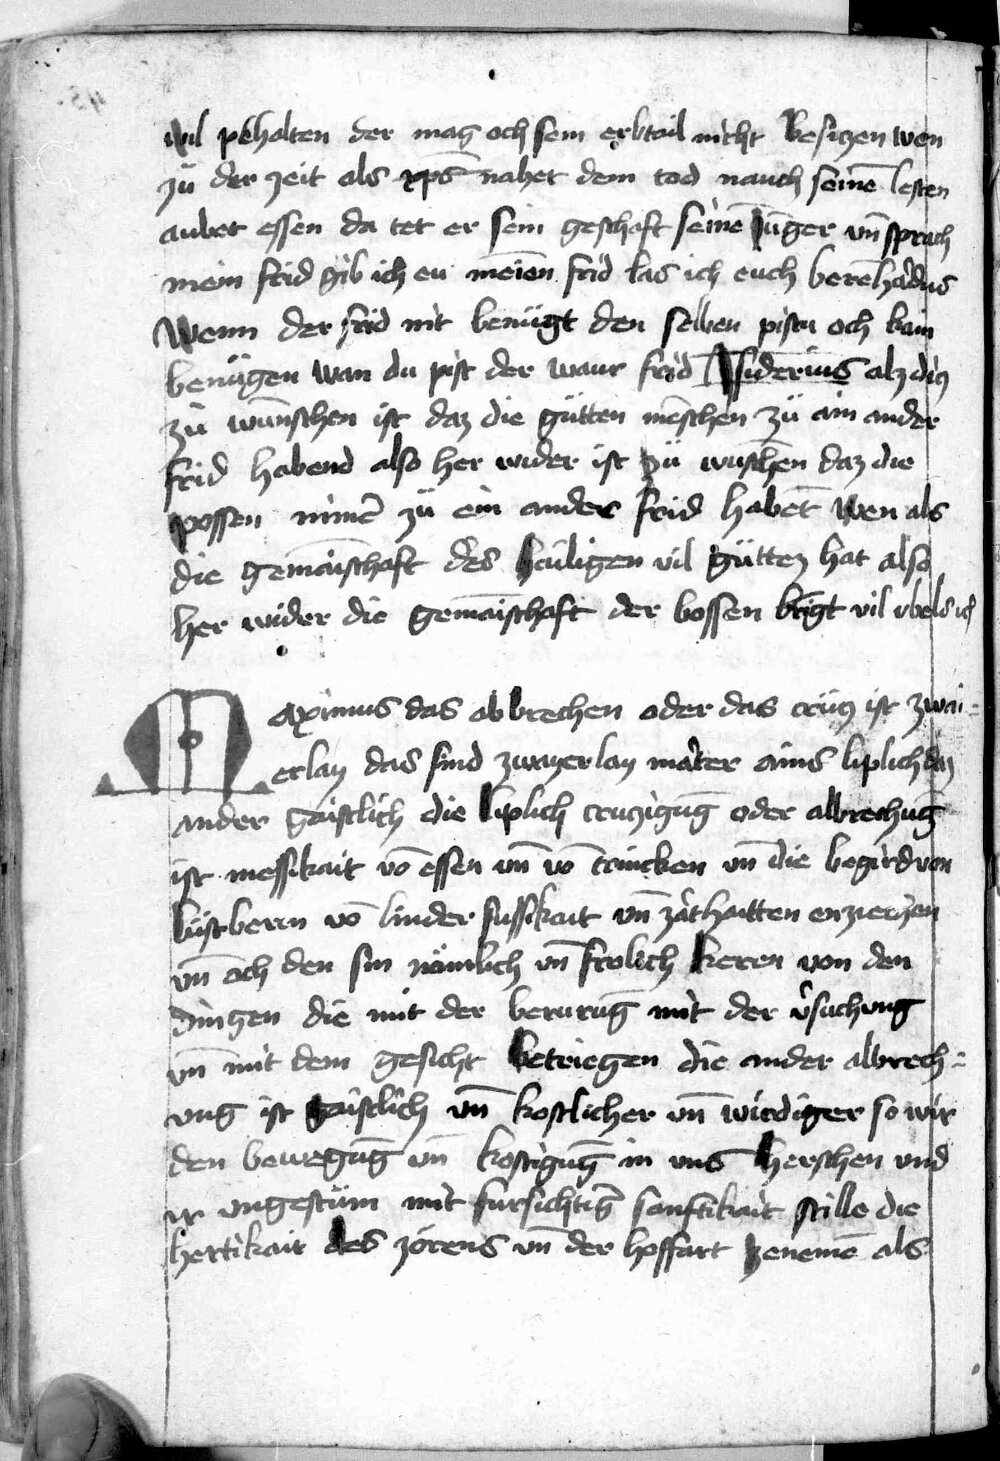 wil pehalten der mag och sein erbtail nicht besiczen wen
zü der zeit als xp̄s nahet dem tod nauch seinē lesten
aubet essen da tet er sein geschäft seinē jūger vn̄ sprach
mein frid gib ich eu meīen frid las ich euch berēhādus
Wenn der frid nit benügt den selben pistu och kain
benügen wan du pist der waur frid Ysiderius alz dig
zü wūnschen ist daz die gütten mēschen zü ain ander
frid habend also her wider ist zü wuschēn daz die
possen nimer̄ zü ein ander frid habēt wen als
die gemainschaft des hailigen vil güttez hat also
her wider die gemaīschaft der bossen brīgt vil vbels ich
Maximus das abbrechen oder das crücz ist zwai=
erlay das sind zwayerlay mater ains liplich daz
ander gaistlich die liplich cruczigūg oder abbrechūg
ist messikait vō essen vn̄ vō trincken vn̄ die begird von
lüstberrn vō linder sussikait vn̄ zäthaitten enziechen
vn̄ och den sin nämlich vn̄ frolich keren von den
dingen die mit der berurūg mit der v̄suchung
vn̄ mit dem gesicht betriegen die ander abbrech=
ung ist gaistlich vn̄ kostlicher vn̄ wirdiger so wir
den bewegūg vn̄ kostigūg in vns herschen vnd
ir vngestüm mit fursichtiḡ sanftikait stille die
hertikait des zorens vn̄ der hoffart zenemē als